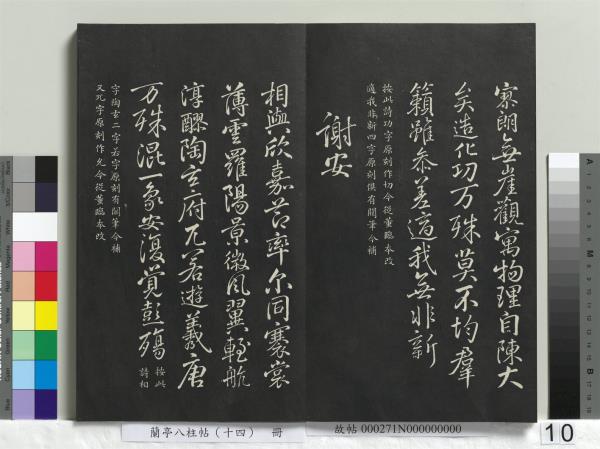 寥朗無崖觀寓物理自陳大
矣造化功万殊莫不均羣
籟雖参差適我無非新
按此詩功字原刻作切今從董臨本改
適我非新四字原刻俱有闕筆今補
謝安
相與欣嘉節率尔同褰裳
薄雲羅陽景微風翼輕航
淳醪陶玄府兀若遊羲唐
万殊混一象安復覺彭殤
按此
詩相
字陶玄二字若字原刻有闕筆今補
又兀字原刻作允今從董臨本改
蘭亭八柱帖（十四） 冊
故帖 000271N000000000
10